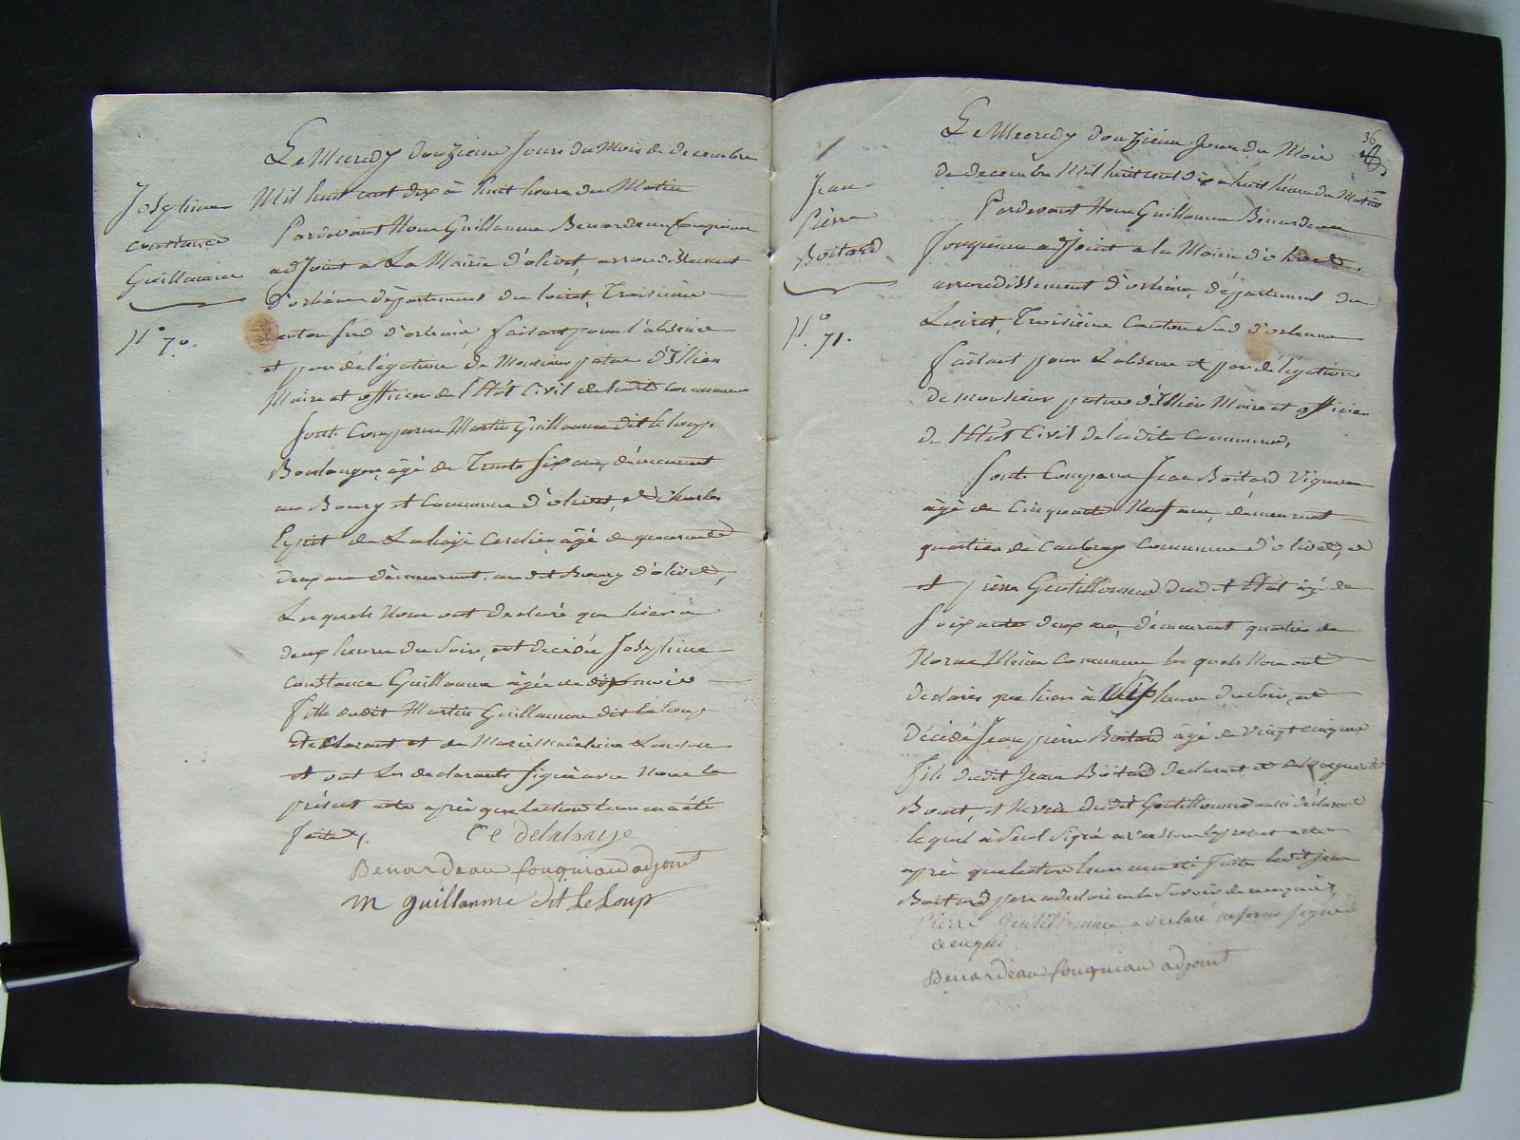 Josephine
constance
Guillaume
N.° 70.
Le Mercredy Douzieme Jour du Mois de decembre
Mil huit cent dix à huit heure du Matin
Pardevant Nous Guillaume Benardeau fouqueau
adjoint a La Mairie d'olivet, arrondissement
d'orleans departement du loiret, Troisieme
canton sud d'orleans, faisant pour l'absence
et par délégation de Monsieur patas d'Illiers
Maire et officier de l'Etat Civil de ladite commune
Sont Comparus Martin Guillaume dit le loup
Boulanger, âgé de Trente six ans, demeurant
au Bourg et Commune d'olivet, et Charles
Esprit de Lahaye Cerclier âgé de quarante
deux ans demeurant au dit Bourg d'olivet,
Lesquels Nous ont declaré que hier à
deux heures du Soir, est decedée Josephine
constance Guillaume agée de dix mois
fille dudit Martin Guillaume dit le loup
declarant et de Marie
et ont Les declarants signé avec Nous le
présent acte après que lecture leur en a été
faite
C e delahaye
Benardeau fouqueau adjoint
M guillaume dit Le Loup
36
Jean
Pierre
Boitard
N.° 71.
Le Mercredy Douzieme Jour du Mois
de decembre Mil huit cent dix a huit heure du Matin
Pardevant Nous Guillaume Benardeau
fouqueau adjoint a la Mairie d'olivet
arrondissement d'orleans, département du
Loiret, Troisieme Canton Sud d'orleans
faisant pour L'absence et par délégation
de monsieur patas d'Illiers Maire et officier
de l'Etat Civil de ladite Commune,
Sont Comparus Jean Boitard Vigneron
âgé de Cinquante Neuf ans, demeurant
quartier de Commune d'olivet,
et pierre Gentilhomme dudit Etat âgé de
Soixante deux ans, demeurant quartier de
Commune les quels Nous ont
declarés que hier à heure du Soir, est
décédé Jean pierre Boitard âgé de Vingt cinq ans
fils dudit Jean Boitard declarant et de
et Neveu dudit Gentilhomme aussi déclarant
lequel a Seul Signé avec Nous le present acte
après que lecture leur en a été faite ledit Jean
Boitard pere a declaré ne le Savoir de ce enquis
Pierre Gentilhomme a declaré ne savoir signé
ce enquis
Benardeau fouqueau adjoint